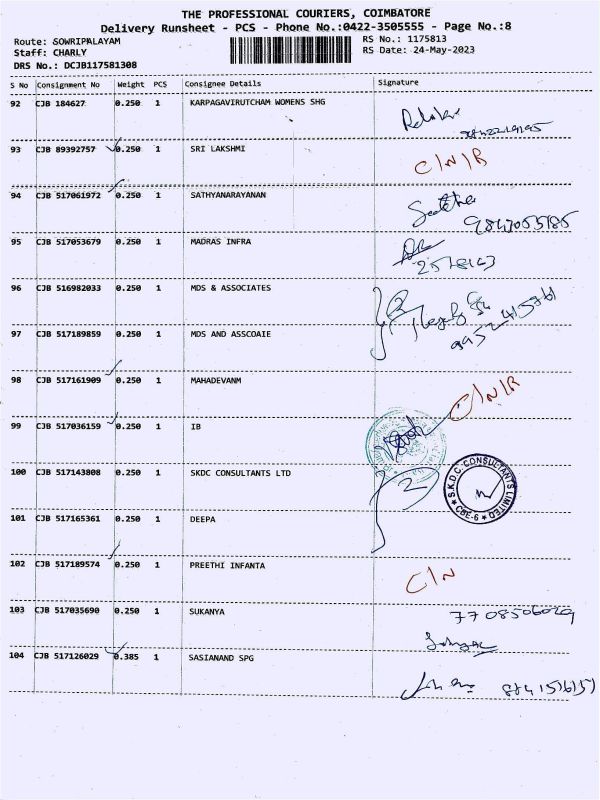 THE PROFESSIONAL COURIERS, COIMBATORE
Delivery Runsheet - PCS - Phone No.:0422-3505555 - Page No.:8
Route: SOWRIPALAYAM
RS No.: 1175813
Staff: CHARLY
RS Date: 24-May-2023
DRS No.: DCJB117581308
S No Consignment No Weight PCS Consignee Details Signature
92 CJB 184627 0.250 1 KARPAGAVIRUTCHAM WOMENS SHG
93 CJB 89392757 0.250 1 SRI LAKSHMI C/N/R
94 CJB 517061972 0.250 1 SATHYANARAYANAN
95 CJB 517053679 0.250 1 MADRAS INFRA
96 CJB 516982033 0.250 1 MDS & ASSOCIATES
97 CJB 517189859 0.250 1 MDS AND ASSCOAIE
98 CJB 517161909 0.250 1 MAHADEVANM C/N/R
99 CJB 517036159 0.250 1 IB
100 CJB 517143808 0.250 1 SKDC CONSULTANTS LTD 2
S.K.D.C. CONSULTANTS LIMITED
CBE-6
101 CJB 517165361 0.250 1 DEEPA
102 CJB 517189574 0.250 1 PREETHI INFANTA C/N
103 CJB 517035690 0.250 1 SUKANYA 7708506029
104 CJB 517126029 0.385 1 SASIANAND SPG